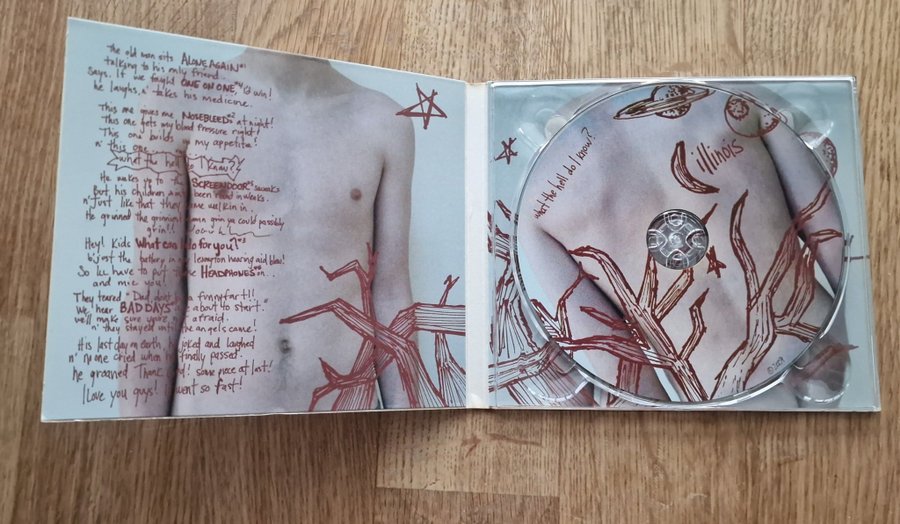 The old man sits ALONE AGAIN #1
talking to his only friend...
Says, If we fought ONE ON ONE, #4 I'd win!
he laughs, n' takes his medicine.
This one gives me NOSEBLEEDS #2 at night!
This one gets my blood pressure right!
This one builds up my appetite!
n' this one
what the hell do I know?
He wakes up to the SCREENDOOR squeaks
But his children been round in weeks.
n' just like that they come walkin in..
He grinned the grinniest damn grin ya could possibly
grin!!
Hey! Kids What can I do for you? #3
b'just the battery in my hearing aid blew!
So lu have to put these HEADPHONES on...
and mic you!
They teared "Dad, don't a funny fart!!
We hear BAD DAYS are about to start."
we'll make sure you're not afraid.
n' they stayed until the angels came!
His last day on earth, he joked and laughed
n' no one cried when he finally passed.
he groaned Thank God! some peace at last!
I Love you guys! It went so fast!
"what the hell do I know?"
illinois
©2009